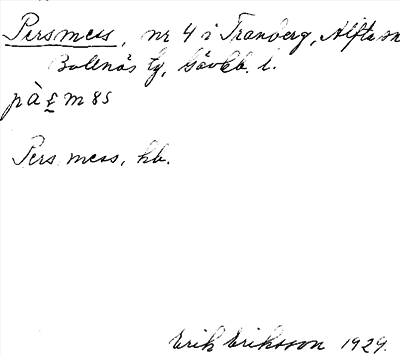 Persmess, nr 4 i Tranberg, Alfta sn
Bollnäs tg, Gävleb. l.
på £ m 85
Pers mess, hb.
Erik Eriksson 1929.